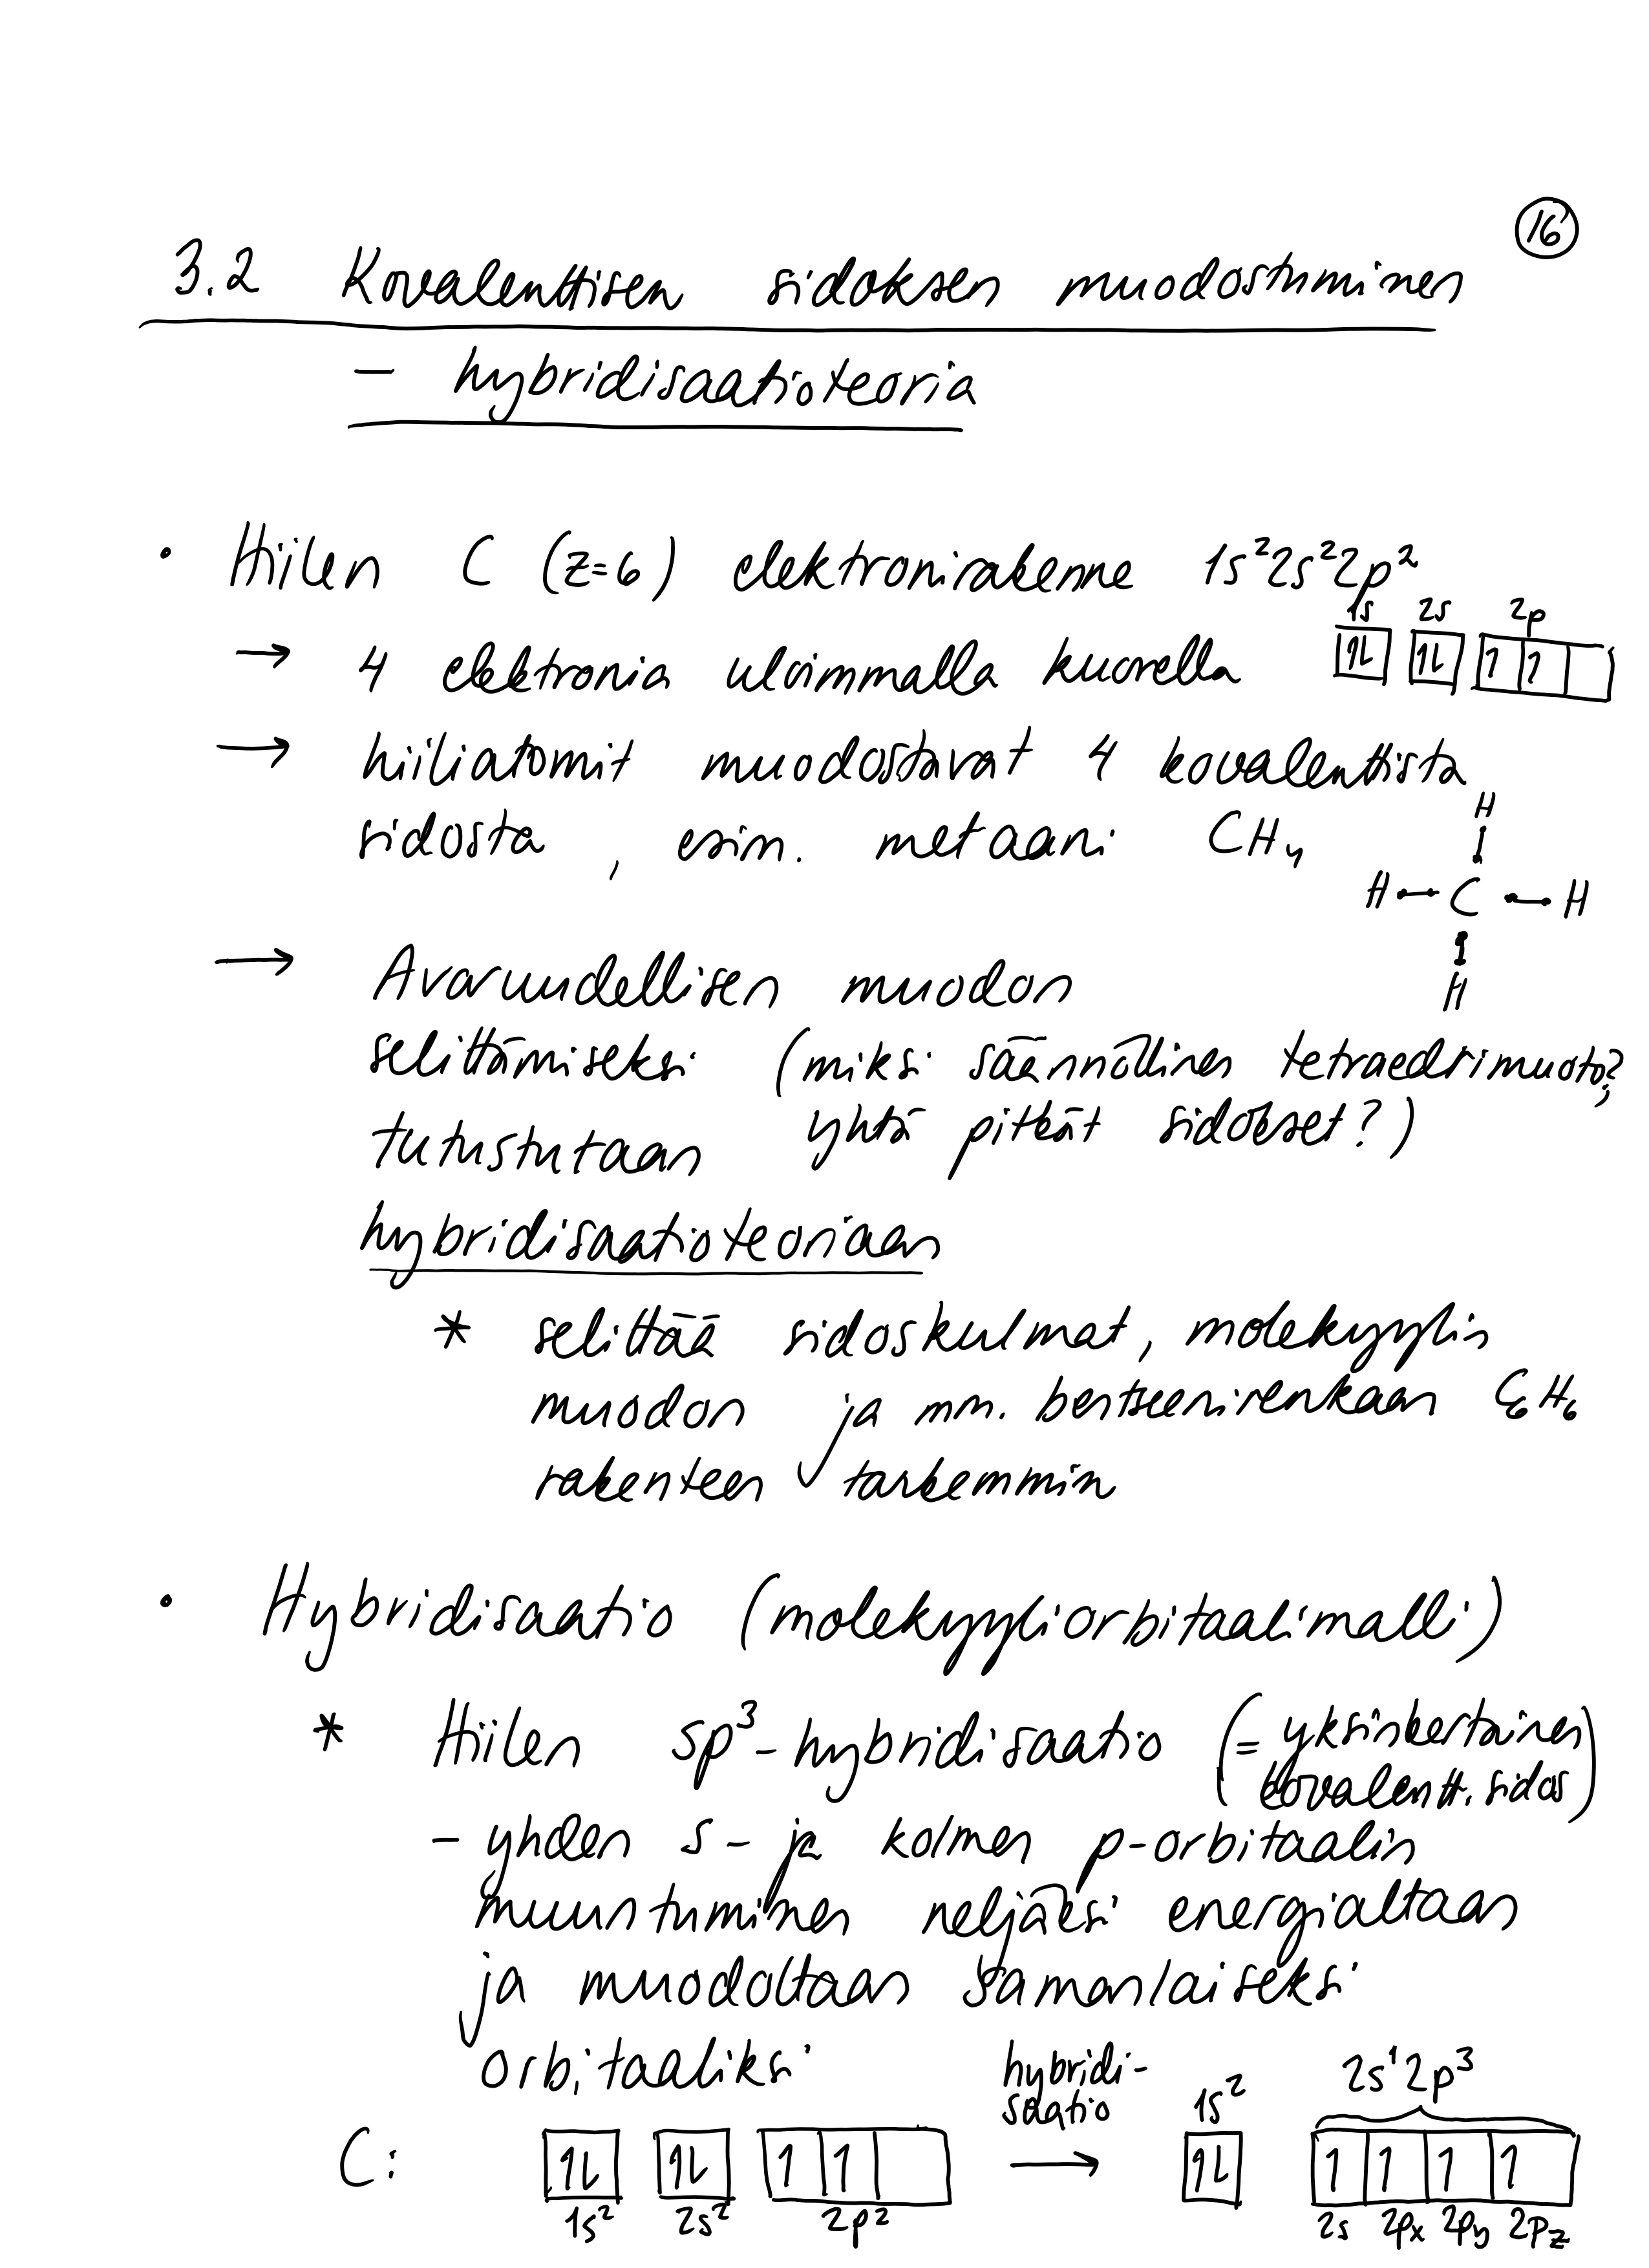 16
3.2 Kovalenttisen sidoksen muodostuminen
- hybridisaatioteoria
• Hiilen C (Z=6) elektronirakenne 1s²2s²2p²
1s 2s 2p
→ 4 elektronia uloimmalla kuorella 1L 1L 1 1
→ hiiliatomit muodostavat 4 kovalenttista
sidosta, esim. metaani CH₄
H
H C H
H
→ Avaruudellisen muodon
selittämiseksi (miksi säännöllinen tetraedrimuoto?,
tutustutaan yhtä pitkät sidokset?)
hybridisaatioteoriaan
* selittää sidoskulmat, molekyylin
muodon ja mm. bentseenirenkaan C₆H₆
rakenteen tarkemmin
• Hybridisaatio (molekyyliorbitaalimalli)
* Hiilen sp³-hybridisaatio (= yksinkertainen
kovalentt. sidos)
- yhden s- ja kolmen p-orbitaalin
muuntuminen neljäksi energialtaan
ja muodoltaan samanlaiseksi
orbitaaliksi
hybridi-
saatio
1s² 2s¹2p³
C: 1L 1L 1 1 → 1L 1 1 1 1
1s² 2s² 2p² 2s 2px 2py 2pz